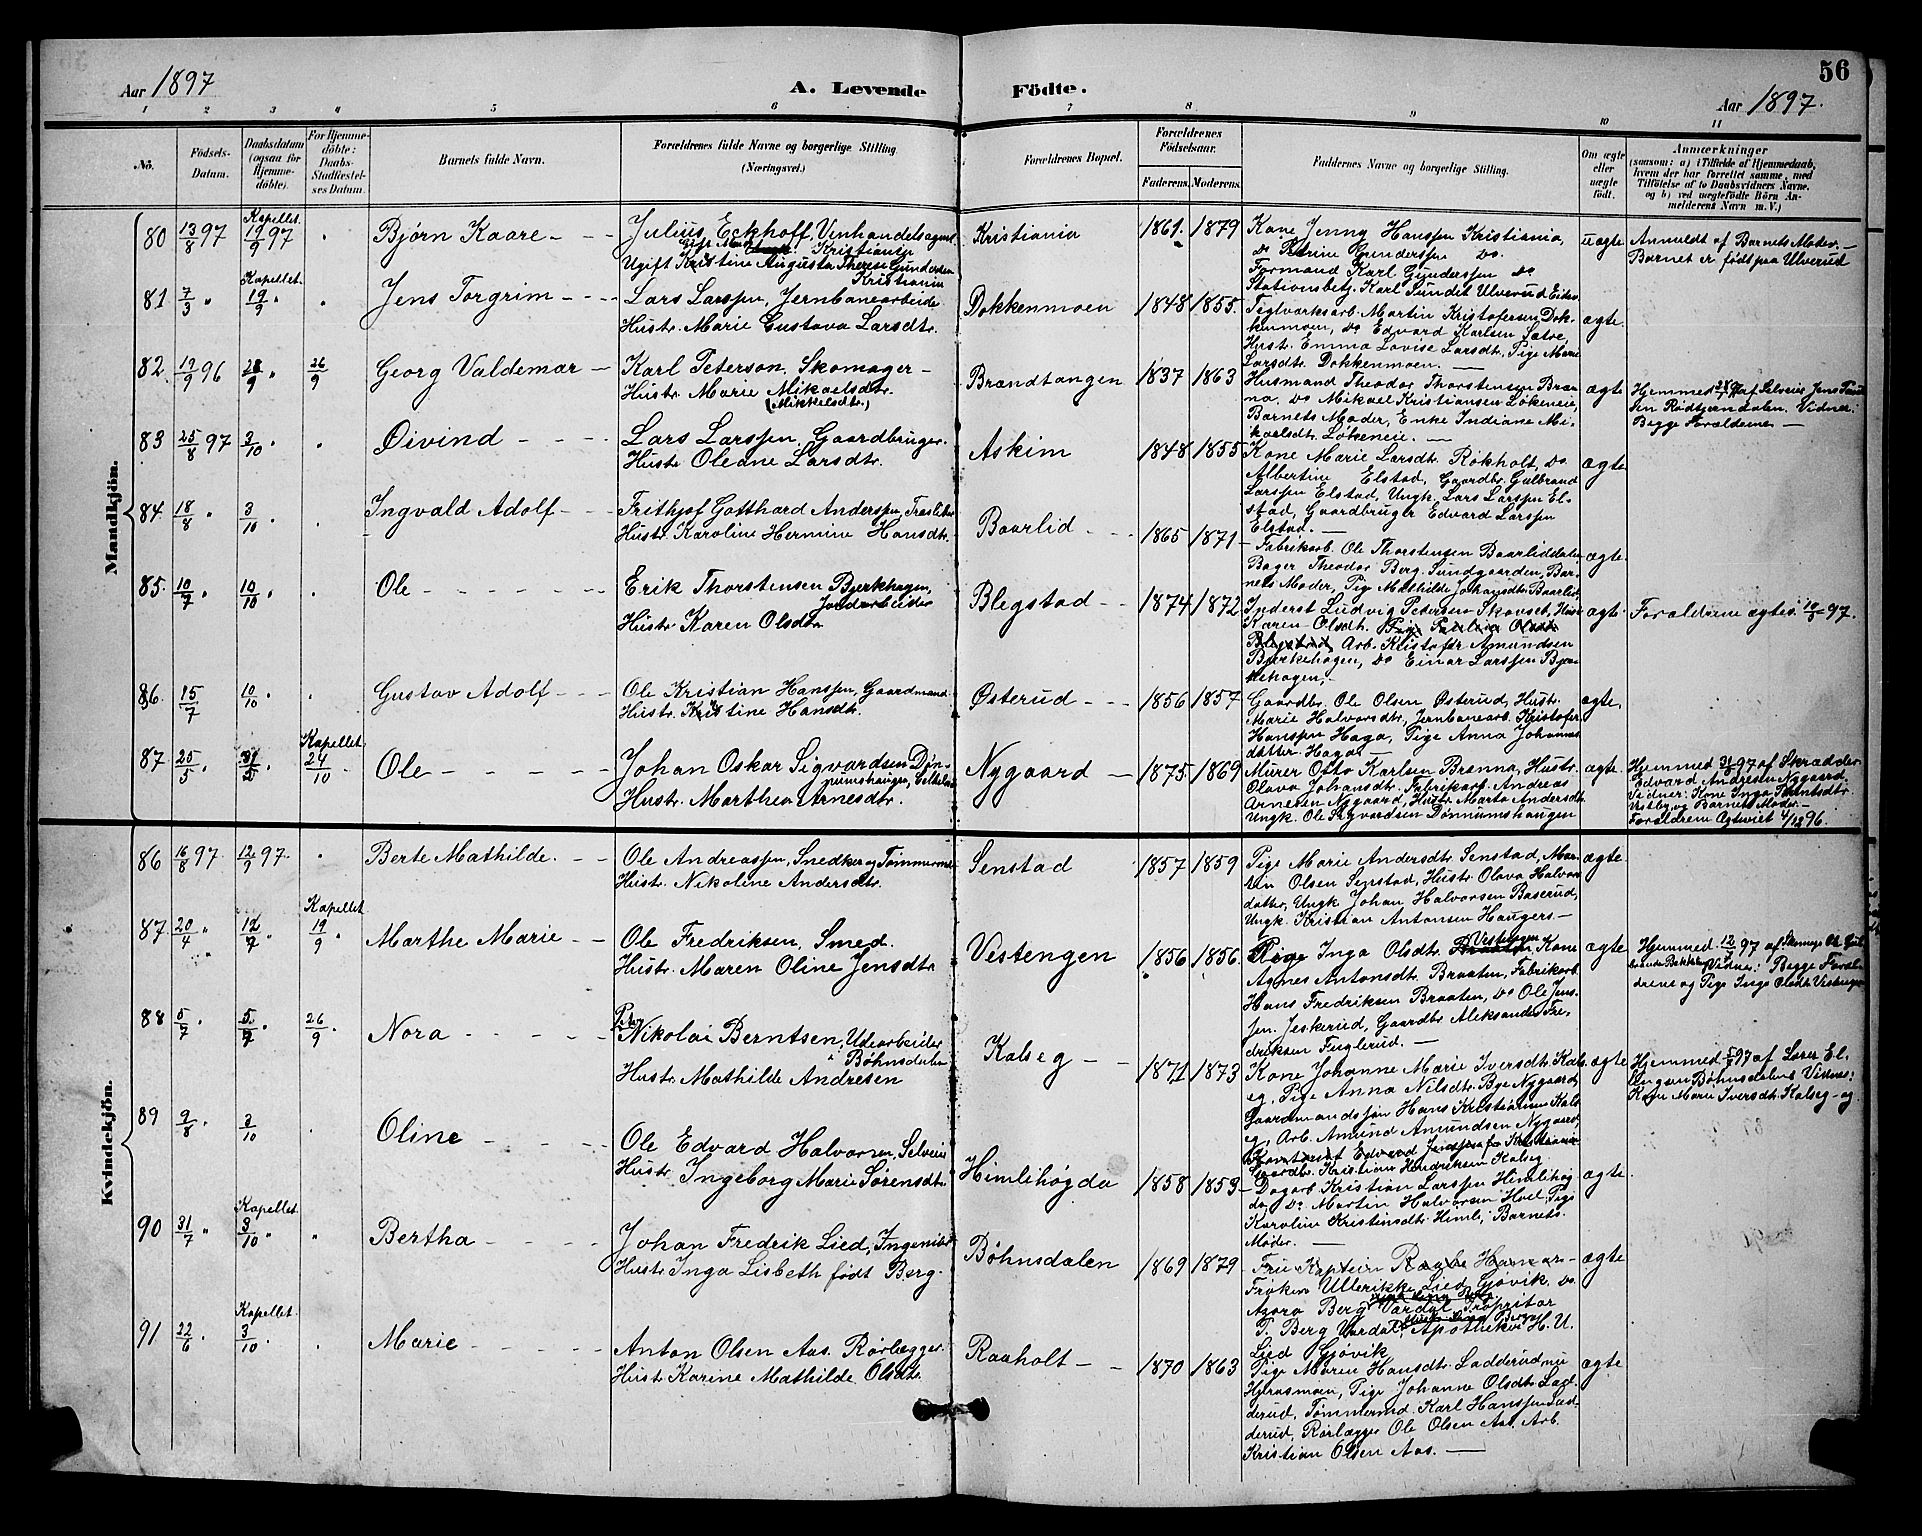 56
Aar 1897 A. Levende Födte. Aar 1897.
1 2 3 4 5 6 7 8 9 10 11
No. Födsels-Datum. Daabsdatum (ogsaa for Hjemmedöbte). For Hjemmedöbte: Daabs-Stadfæstelses Datum. Barnets fulde Navn. Forældrenes fulde Navne og borgerlige Stilling. (Næringsvei.) Forældrenes Bopæl. Forældrenes Födselsaar. Faderens. Moderens. Faddernes Navne og borgerlige Stilling. Om ægte eller uægte födt. Anmærkninger (saasom: a) i Tilfælde af Hjemmedaab, hvem der har forrettet samme, med Tilföielse af to Daabsvidners Navne, og b) ved uægtefödte Börn Anmelderens Navn m. V.)
Mandkjön.
80 13/8 97 Kapellet 19/9 97 Bjørn Kaare
Julius Eckhoff, Vinhandelsagent
Kristiania
Ugift Kristine Augusta Therese Gundersen
Kristiania
Kristiania 1861. 1879
Kone Jenny Hanssen Kristiania,
Do Karine Gunderssen Do
Formand Karl Gunderssen Do
Stationsbetj. Karl Sundet Ulverud Eidsv.
uægte
Anmeldt af Barnets Moder.
Barnet er født paa Ulverud
81 7/3 " Kapellet 19/9 Jens Torgrim
Lars Larssen, Jernbanearbeide
Hustr. Marie Gustava Larsdtr.
Dokkenmoen 1848 1855.
Teglværksarb. Martin Kristofersen Dok-
kenmoen, Do Edvard Karlsen Sætre,
Hustr. Emma Lovise Larsdtr, Pige Marie
Larsdtr. Dokkenmoen.
ægte
82. 19/9 96 28/9 26/9 Georg Valdemar
Karl Peterson, Skomager
Hustr. Marie Mikaelsdtr.
(Mikkelsdtr.)
Brandtangen 1837 1863
Husmand Theodor Thorstensen Bræn-
na, Do Mikael Kristiansen Løkeneie,
Barnets Moder, Enke Indiane Mi-
kaelsdtr. Løkeneie.
ægte
Rødtjerndalen. Vidner:
Begge Forældrene
83 25/8 97 3/10 Øivind
Lars Larssen, Gaardbruger.
Hustr Oleane Larsdtr.
Askim 1848 1855
Kone Marie Larsdtr. Røkholt, Do
Albertine Elstad, Gaardbr. Gulbrand
Larssen Elstad, Ungk. Lars Larssen El-
stad, Gaardbruger Edvard Larssen
Elstad.
ægte
84. 18/8 " 3/10 Ingvald Adolf
Frithjof Gotthard Anderssen, Træsliber
Hustr. Karoline Hermine Hansdtr.
Baarlid 1865 1871
Fabrikarb. Ole Thorstensen Baarliddalen
Bager Theodor Berg, Sundgaarden, Bar-
nets Moder, Pige Mathilde Johansdtr Baarlid.
ægte
85. 10/7 " 10/10 Ole
Erik Thorstensen Bjerkhagen,
Jordarbeider
Hustr Karen Olsdtr
Blegstad 1874 1872
Inderst Ludvig Petersen Skovset, Hustr
Karen Olsdtr.
Arb. Kristofer Amundsen
Bjerkehagen, Do Einar Larssen Bjer-
kehagen,
ægte
Forældrene ægtev. 97.
86. 15/7 10/10 Gustav Adolf
Ole Kristian Hanssen, Gaardmand
Hustr. Kristine Hansdtr.
Østerud 1856 1857
Gaardbr. Ole Olsen Østerud, Hustr.
Marie Halvorsdtr, Jernbanearb. Kristofer
Hanssen Haga, Pige Anna Johannes
datter Haga
ægte,
87 20/5 31/5 Kapellet 24/10 Ole
Johan Oskar Sigvardsen Døn-
numshaugen,
Hustr. Marthea Arnesdtr.
Nygaard 1875. 1869
Murer Otto Karlsen Brænna, Hustr.
Olava Johansdtr, Fabrikarb. Andreas
Arnesen Nygaard, Hustr. Marta Andersdtr
Ungk. Ole Sigvardsen Dønnumshaugen
ægte
Hjemmed. 97 af Skrædder
Edvard Andresen Nygaard.
Vidner: Kone Inga
Vestby, og Barnets Moder.
Forældrene ægteviet 4/12 96.
Kvindekjön.
86 16/8 97 12/9 97. Berte Mathilde.
Ole Andreassen, Snedker og Tømmermd
Hustr. Nikoline Andersdtr.
Senstad 1857 1859
Pige Marie Andersdtr Senstad, Mar-
tin Olsen Senstad, Hustr. Olava Halvors
datter, Ungk Johan Halvorsen Baserud,
Ungk. Kristian Antonsen Haugers.
ægte
87. 20/4 " 12/7 Kapellet 19/9 Marthe Marie
Ole Fredriksen, Smed.
Hustr. Maren Oline Jensdtr
Vestengen 1856 1856
Pige Inga Olsdtr. Vestengen Kone
Agnes Antonsdtr. Braaten, Fabrikarb
Hans Fredriksen Braaten, Do Ole Jens-
sen Jeskerud, Gaardbr Aleksander Fre-
driksen Fuglerud.
ægte
Hjemmed. 12/7 97 af
Vidner: Begge Foræl-
drene og Pige Inga Olsdtr. Vestengen
88 5/7 5/7 26/9 Nora
Peter
Nikolai Berntsen, Udearbeider
i Bøhnsdalen
Hustr Mathilde Andresen
Kalseg 1871 1873
Kone Johanne Marie Iversdtr Kals-
eg, Pige Anna Nilsdtr. Bye Nygaard,
Gaardmandssøn Hans Kristiansen Kals
eg, Arb. Amund Amundsen Nygaard,
Kontorist Edvard Janssen fr Kristiania
Gaardbr. Kristian Hendriksen Kalseg.
ægte
Hjemmed 5/7 97 af Lærer El-
lingsen Bøhnsdalen Vidner:
Kone Marie Iversdtr. Kalseg og
89 9/8 3/10 Oline
Ole Edvard Halvorsen, Selveier
Hustr. Ingeborg Marie Sørensdtr
Himlihøgda 1858 1859
Dagarb. Kristian Larssen Himlihøg
da, Do Martin Halvorsen Hoel, Pige
Karoline Kristiansdtr. Himli, Barnets
Moder.
ægte
90 31/7 " Kapellet 3/10 Bertha
Johan Fredrik Lied, Ingeniør
Hustr Inga Lisbeth født Berg.
Bøhnsdalen 1869 1879
Fru Kaptein Raabe Hamar
Frøken Ullerikke Lied Gjøvik, Do
Azora Berg Vardal, Proprietær
T. Berg Vardal, Apotheker H. U.
Lied Gjøvik
ægte
91 22/6 Kapellet 3/10 Marie
Anton Olsen Aas, Rørlægger
Hustr Karine Mathilde Olsdtr.
Raaholt 1870 1863
Pige Maren Hansdtr. Ladderud nu
Hjerasmoen, Pige Johanne Olsdtr Lad-
derud, Tømmermd. Karl Hanssen Lad-
derud, Rørlægger Ole Olsen Aas, Arb.
Kristian Olsen Aas.
ægte